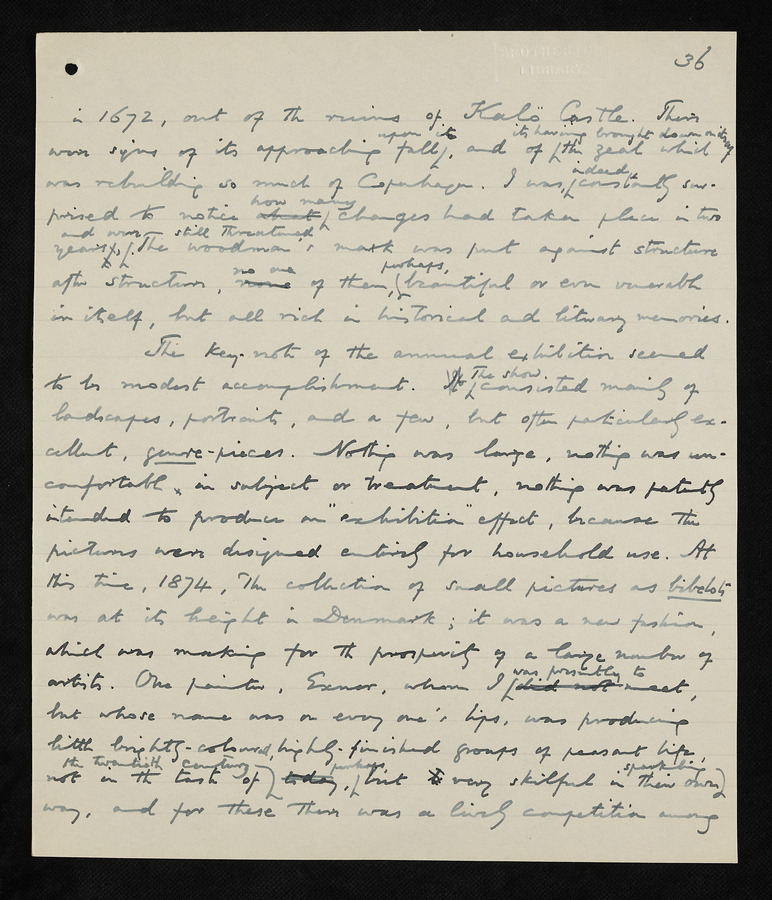 36
in 1672, out of the ruins of Kalö Castle. There
upon it its having brought down
were signs of its approaching fall, and of the zeal which
indeed,
was rebuilding so much of Copenhagen. I was, constantly sur-
how many
prised to notice what changes had taken place in two
and were still threatened
years. The woodman's mark was put against structure
no one perhaps,
after structure, none of them, beautiful or even venerable
in itself, but all rich in historical and literary memories.
The key-note of the annual exhibition seemed
The show
to be modest accomplishment. It consisted mainly of
landscapes, portraits, and a few, but often particularly ex-
cellent, genre-pieces. Nothing was large, nothing was un-
comfortable, in subject or treatment, nothing was patently
intended to produce an "exhibition" effect, because the
pictures were designed entirely for household use. At
this time, 1874, the collection of small pictures as bibelots
was at its height in Denmark; it was a new fashion,
which was making for the prosperity of a large number of
was presently to
artists. One painter, Exner, whom I did not meet,
but whose name was on every one's lips, was producing
little brightly-coloured, highly-finished groups of peasant life,
the twentieth century perhaps, sparkling
not in the taste of today, but very skilful in their own
way, and for these there was a lively competition among